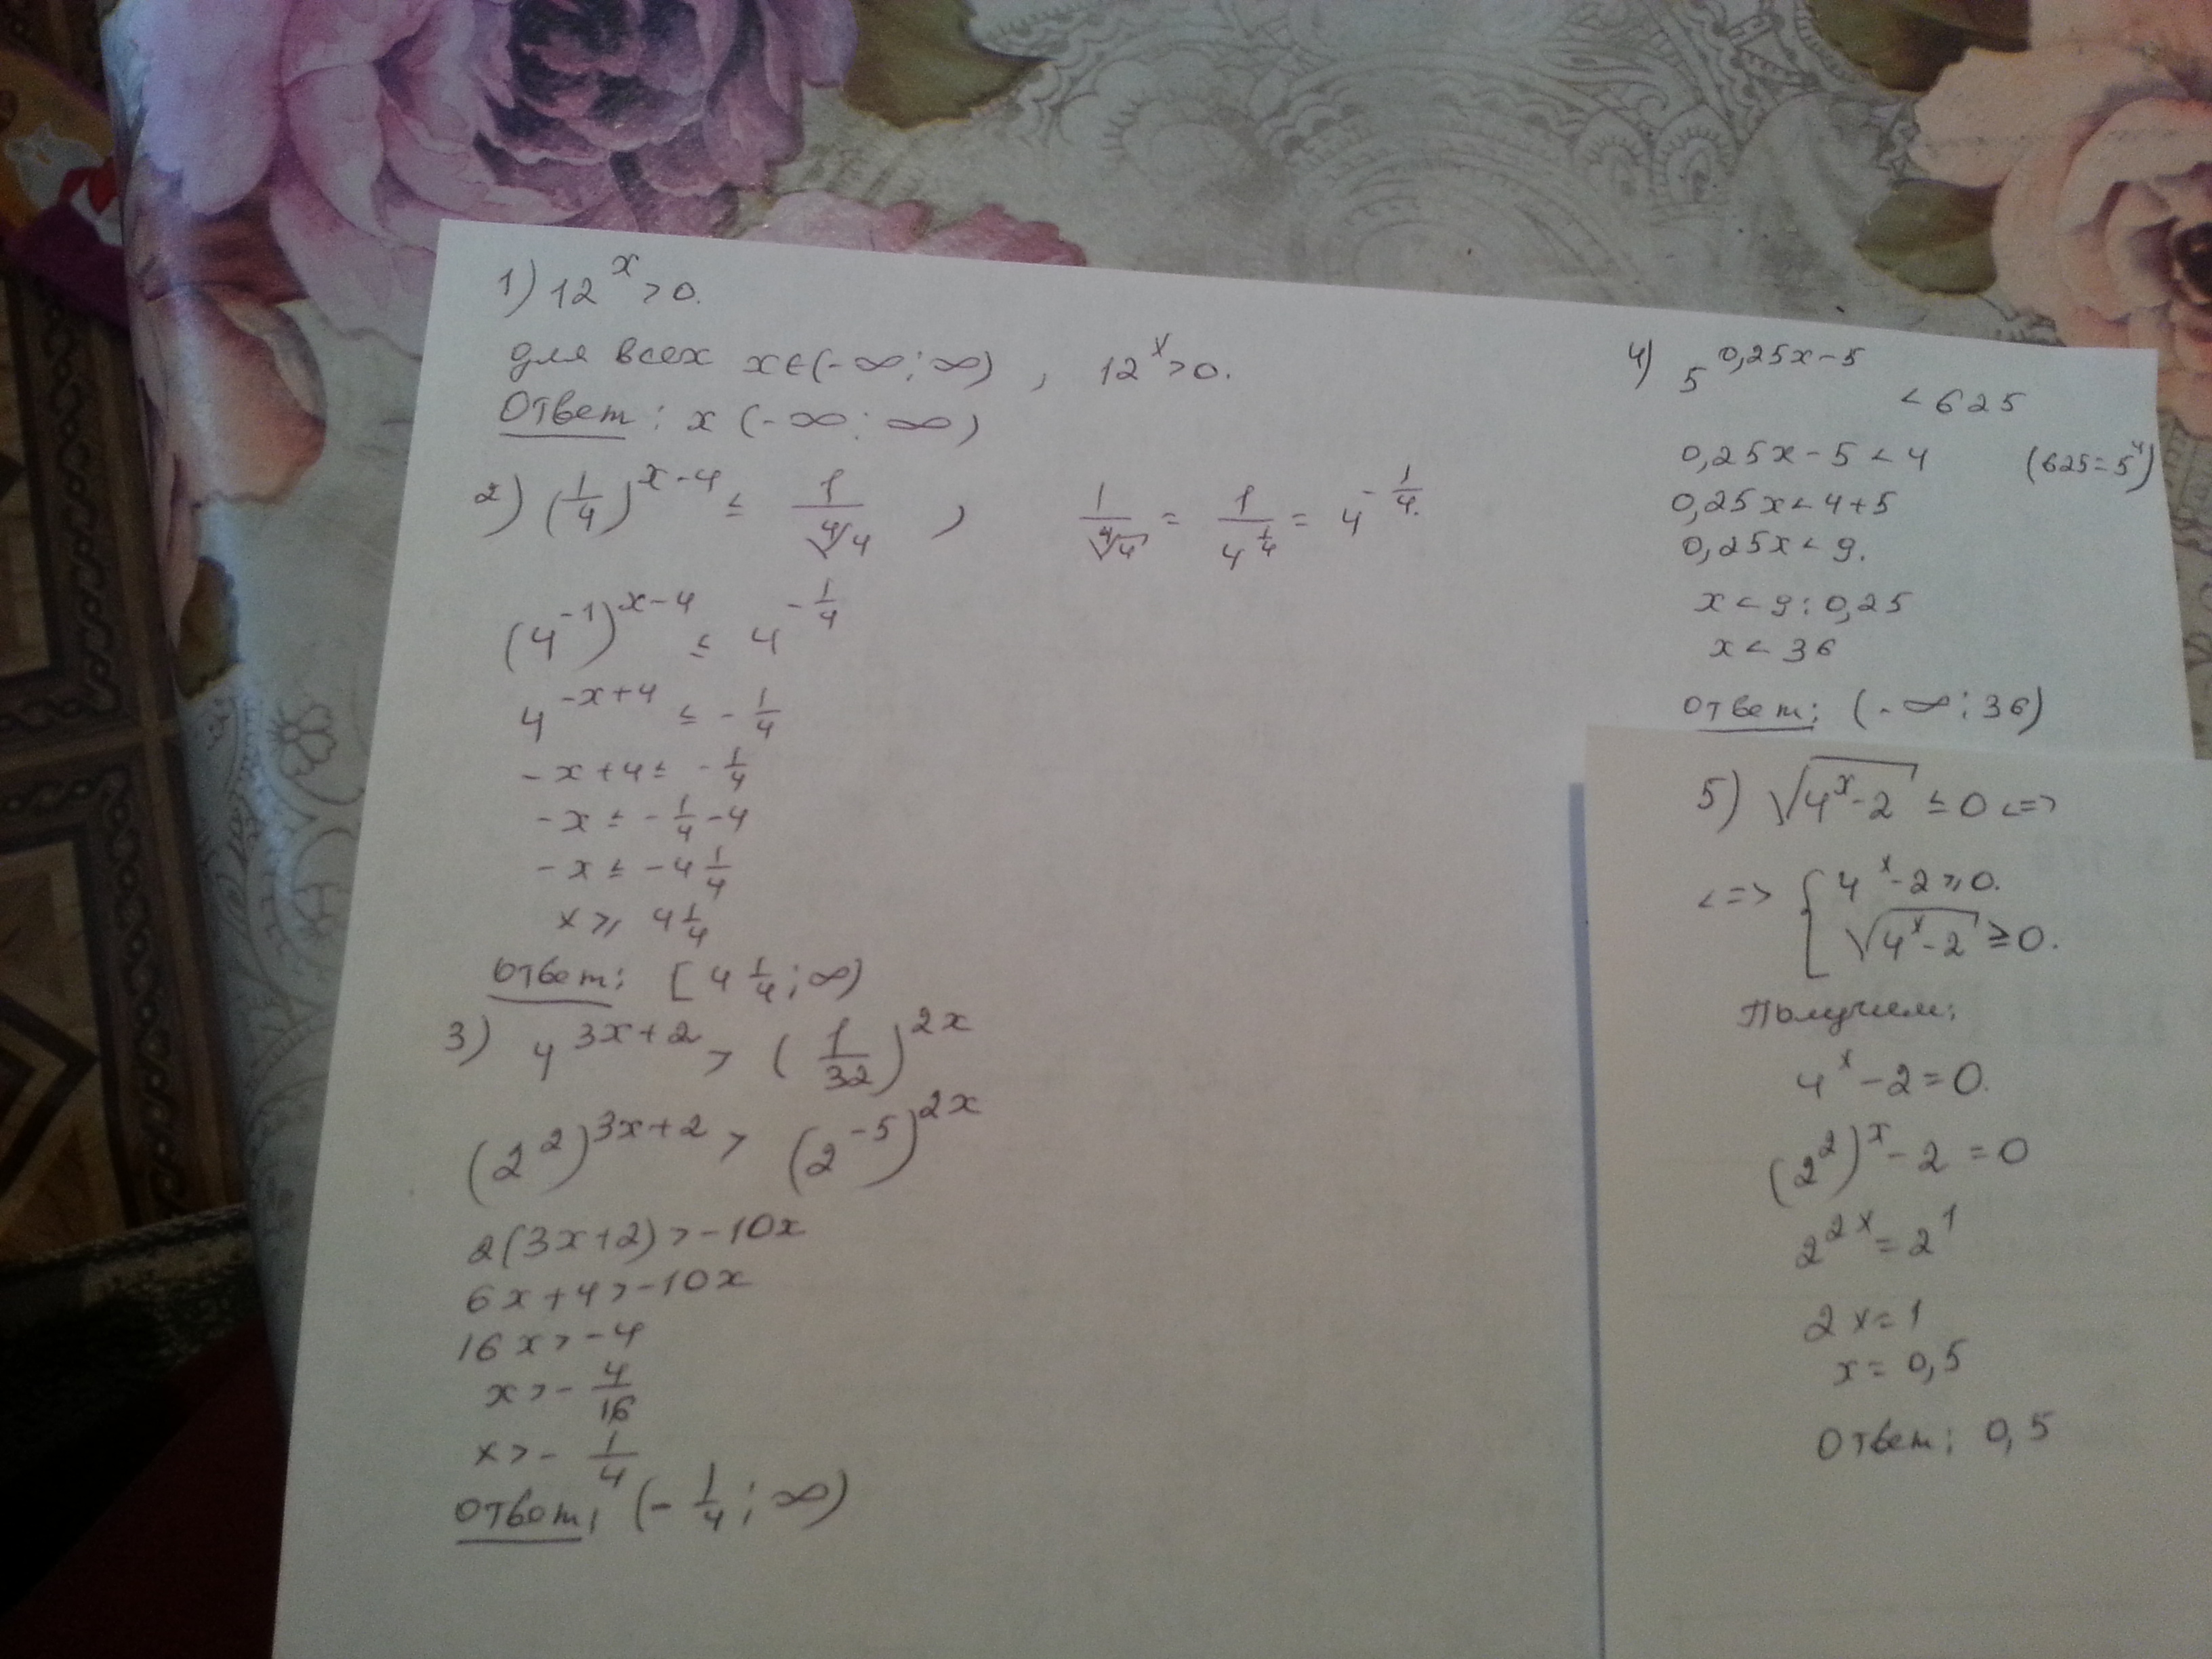 1) 12^x > 0.
для всех x∈(-∞; ∞) , 12^x > 0.
Ответ: x (-∞; ∞)
2) (1/4)^(x-4) ≤ 1/∜4 , 1/∜4 = 1/4^(1/4) = 4^(-1/4).
(4^(-1))^(x-4) ≤ 4^(-1/4)
4^(-x+4) ≤ -1/4
-x+4 ≤ -1/4
-x ≤ -1/4 -4
-x ≤ -4 1/4
x ≥ 4 1/4
Ответ: [4 1/4; ∞)
3) 4^(3x+2) > (1/32)^(2x)
(2^2)^(3x+2) > (2^(-5))^(2x)
2(3x+2) > -10x
6x+4 > -10x
16x > -4
x > -4/16
x > -1/4
Ответ: (-1/4; ∞)
4) 5^(0,25x-5) < 625
0,25x-5 < 4 (625=5^4)
0,25x < 4+5
0,25x < 9.
x < 9:0,25
x < 36
Ответ: (-∞; 36)
5) √(4^x-2) ≤ 0 <=>
<=> { 4^x-2 ≥ 0.
√(4^x-2) ≥ 0.
Получим:
4^x-2=0.
(2^2)^x-2=0
2^(2x)=2^1
2x=1
x=0,5
Ответ: 0,5